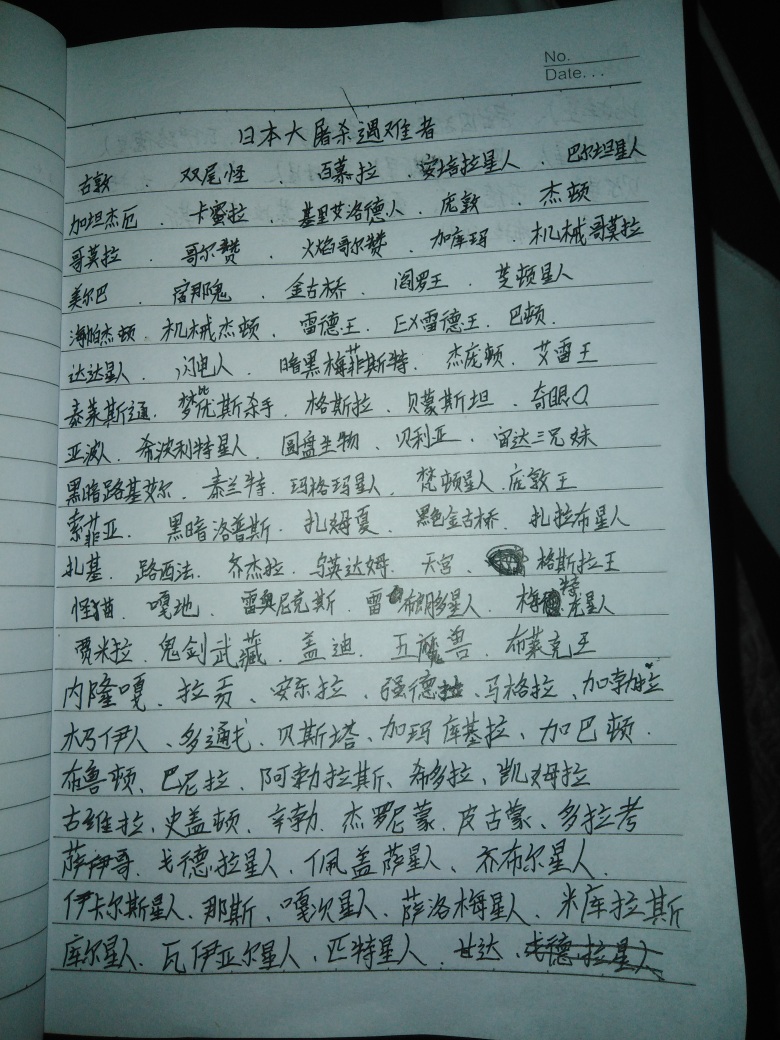 No.
Date...
日本大屠杀遇难者
古敦 . 双尾怪 . 百慕拉 . 安塔拉星人 . 巴尔坦星人
加坦杰厄 . 卡蜜拉 . 基里艾洛德人 . 庞敦 . 杰顿
哥莫拉 . 哥尔赞 . 火焰哥尔赞 . 加库玛 . 机械哥莫拉
美尔巴 . 宿那鬼 . 金古桥 . 阎罗王 . 芝顿星人
海帕杰顿 . 机械杰顿 . 雷德王 . EX雷德王 . 巴顿 .
达达星人 . 闪电人 . 暗黑梅菲斯特 . 杰庞顿 . 艾雷王
泰莱斯通 . 梦比优斯杀手 . 格斯拉 . 贝蒙斯坦 . 奇眼Q
亚波人 . 希波利特星人 . 圆盘生物 . 贝利亚 . 雷达三兄妹
黑暗路基艾尔 . 泰兰特 . 玛格玛星人 . 梵顿星人 . 庞敦王
索菲亚 . 黑暗洛普斯 . 扎姆夏 . 黑色金古桥 . 扎拉布星人
扎基 . 路西法 . 乔杰拉 . 乌英达姆 . 天宫 . 格斯拉王
怪猫 . 嘎地 . 雷奥尼克斯 . 雷布朗多星人 . 梅特龙星人
贾米拉 . 鬼剑武藏 . 盖迪 . 五魔兽 . 布莱克王
内隆嘎 . 拉贡 、安东拉 、强德拉 、马格拉 、加勃拉
木乃伊人 、多通戈 、贝斯塔 、加玛库基拉 、加巴顿 .
布鲁顿 、巴尼拉 、阿勃拉斯 、希多拉 、凯姆拉
古维拉 、史盖顿 、辛勃 . 杰罗尼蒙 、皮古蒙 、多拉考
萨伊哥 、戈德拉星人 、佩盖萨星人 、乔布尔星人 .
伊卡尔斯星人 、那斯 、嘎次星人 、萨洛梅星人 、米库拉斯
库尔星人 、瓦伊亚尔星人 、匹特星人 、甘达 、戈德拉星人